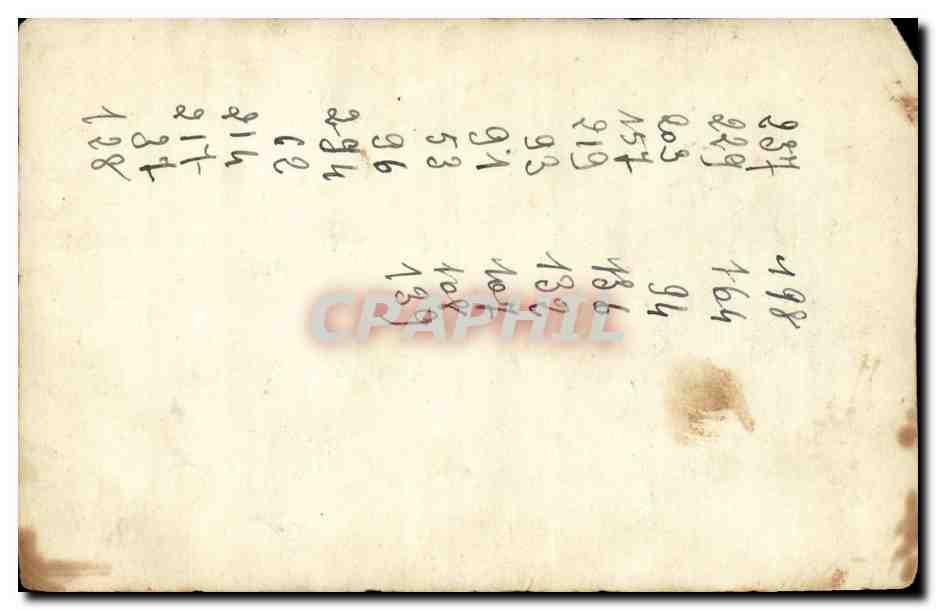 237
229
203
157
219
93
91
53
96
294
62
214
217
37
128
198
164
94
136
132
101
108
139
CPAPHIL